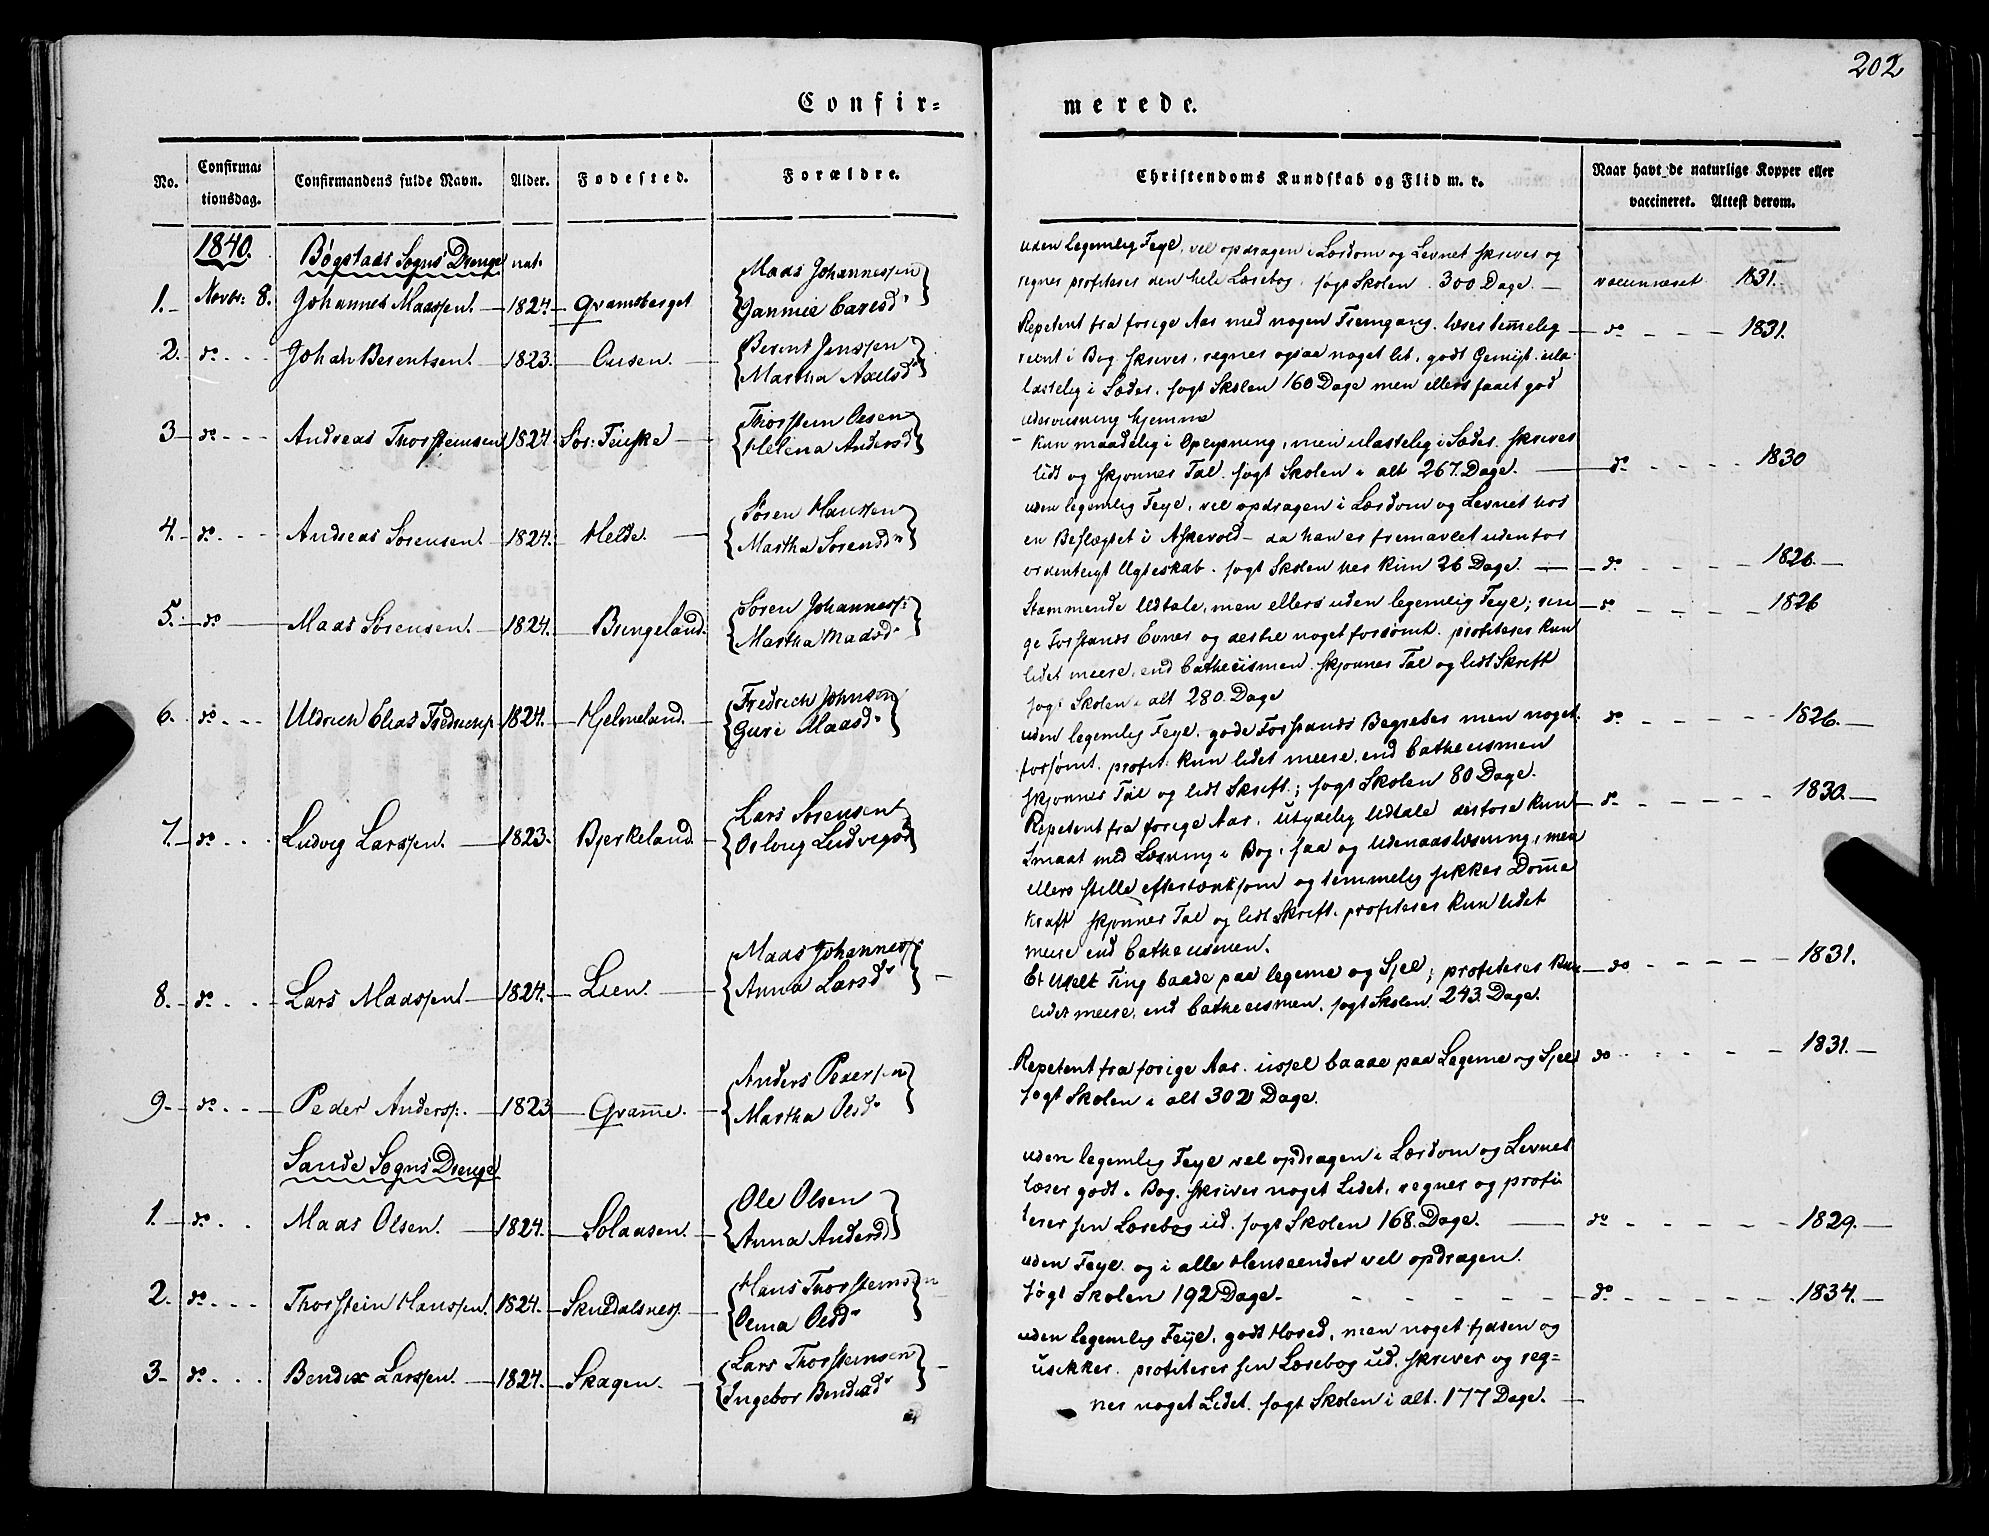 202
Confir=
merede.
No.
Confirma:
tionsdag.
Confirmandens fulde Navn.
Alder.
Fodested.
Forældre.
Christendoms Kundskab og Flid m. v.
Naar havt de naturlige Kopper eller
vaccineret. Attest derom.
1840.
Bøgstads Sogns Drenge
nat.
1. Novbr: 8. Johannes Maassen. 1824 Qvamsberget
Maas Johannessen
uden legemlig Feyl, vel opdragen i Lærdom og Levnet skriver og
regner profiterer den hele Læsebog. søgt Skolen 300 Dage.
vaccineret 1831.
2. do Johan Berentsen. 1823.
Berent Jenssen
Martha Axelsd
Repetent fra forige Aar med nogen Fremgang. læser temmelig
reent i Bog. skriver, regner ogsaa noget lit, godt Gemyt. ula-
lastelig i Sæder. søgt Skolen 160 Dage men ellers faaet god
underviisning hjemme
do 1831.
3 do Andreas Thorsteinsen 1824
Thorstein Olsen
Helena Andersd
Kun maadelig i Oplysning, men ulastelig i Sæder. skriver
lidt og skjønner Tal. søgt Skolen i alt 267. Dage.
do 1830
4. do Andreas Sørensen. 1824. Helde.
Søren Hanssen
Martha Sørensd
uden legemlig Feyl, vel opdragen i Lærdom og Levnet hos
en Beslægtet i Askevold da han er fremavlet udenfor
ordentligt Ægteskab. søgt Skolen her kun 26 Dage.
do 1826.
5. do Maas Sørensen. 1824. Bringeland.
Søren Johanness:
Martha Madsd
Stammende Udtale, men ellers uden legemlig Feyl; rin-
ge Forstands Evner og dertil noget forsømt. profiterer kun
lidet meere, end Cathecismen. skjønner Tal og lidt Skrift
søgt Skolen i alt 280. Dage
do 1826
6. do Uldrich Elias Fredrichs. 1824. Hjelmeland.
Fredrich Johnsen
Guri Maasd
uden legemlig Feyl. gode Forstands Begreber men noget
forsømt. profit: kun lidet meere, end Cathecismen
skjønner Tal og lidt Skrift; søgt Skolen 80 Dage.
do 1826.
7. do Ludvig Larssen. 1823. Bjerkeland.
Lars Sørensen
Ludvigsd
Repetent fra forige Aar. utydelig Udtale derfore kun
smaat med Læsning i Bog, saa og Udenadslæsning, men
ellers stille eftertænksom og temmelig sikker Domme
Kraft skjønner Tal og lidt Skrift. profiterer kun lidet
meere end Cathecismen.
do 1830.
8. do Lars Maassen 1824. Lien.
Maas Johanness
Anna Larsd
Et Uselt Ting baade paa legeme og Sjel; profiterer kun
lidet meere, end Cathecismen. søgt Skolen 243. Dage.
do 1831.
9. do Peder Anderss: 1823 Qvamme.
Anders Pedersen
Martha Olsd
Repetent fra forige Aar. ussel baade paa Legeme og Sjel
søgt Skolen i alt 302 Dage.
do 1831.
Sande Sogns Drenge
1. do Maas Olsen. 1824. Solaasen.
Ole Olsen
Anna Andersd
uden legemlig Feyl vel opdragen i Lærdom og Levnet
læser godt i Bog. skriver noget Lidet, regner og profi-
terer sin Læsebog ud. søgt Skolen 168. Dage.
do 1829.
2. do Thorstein Hanssen. 1824.
Hans Thorsteinsen
Olsd
uden Feyl og i alle Henseender vel opdragen.
søgt Skolen 192 Dage.
do 1834.
3 do Bendix Larssen. 1824. Skagen.
Lars Thorsteinsen
Ingebor Bendixd
uden legemlig Feyl, godt Hoved, men noget fjasen og
usikker. profiterer sin Læsebog ud. skriver og reg=
ner noget Lidet. søgt Skolen i alt. 177 Dage.